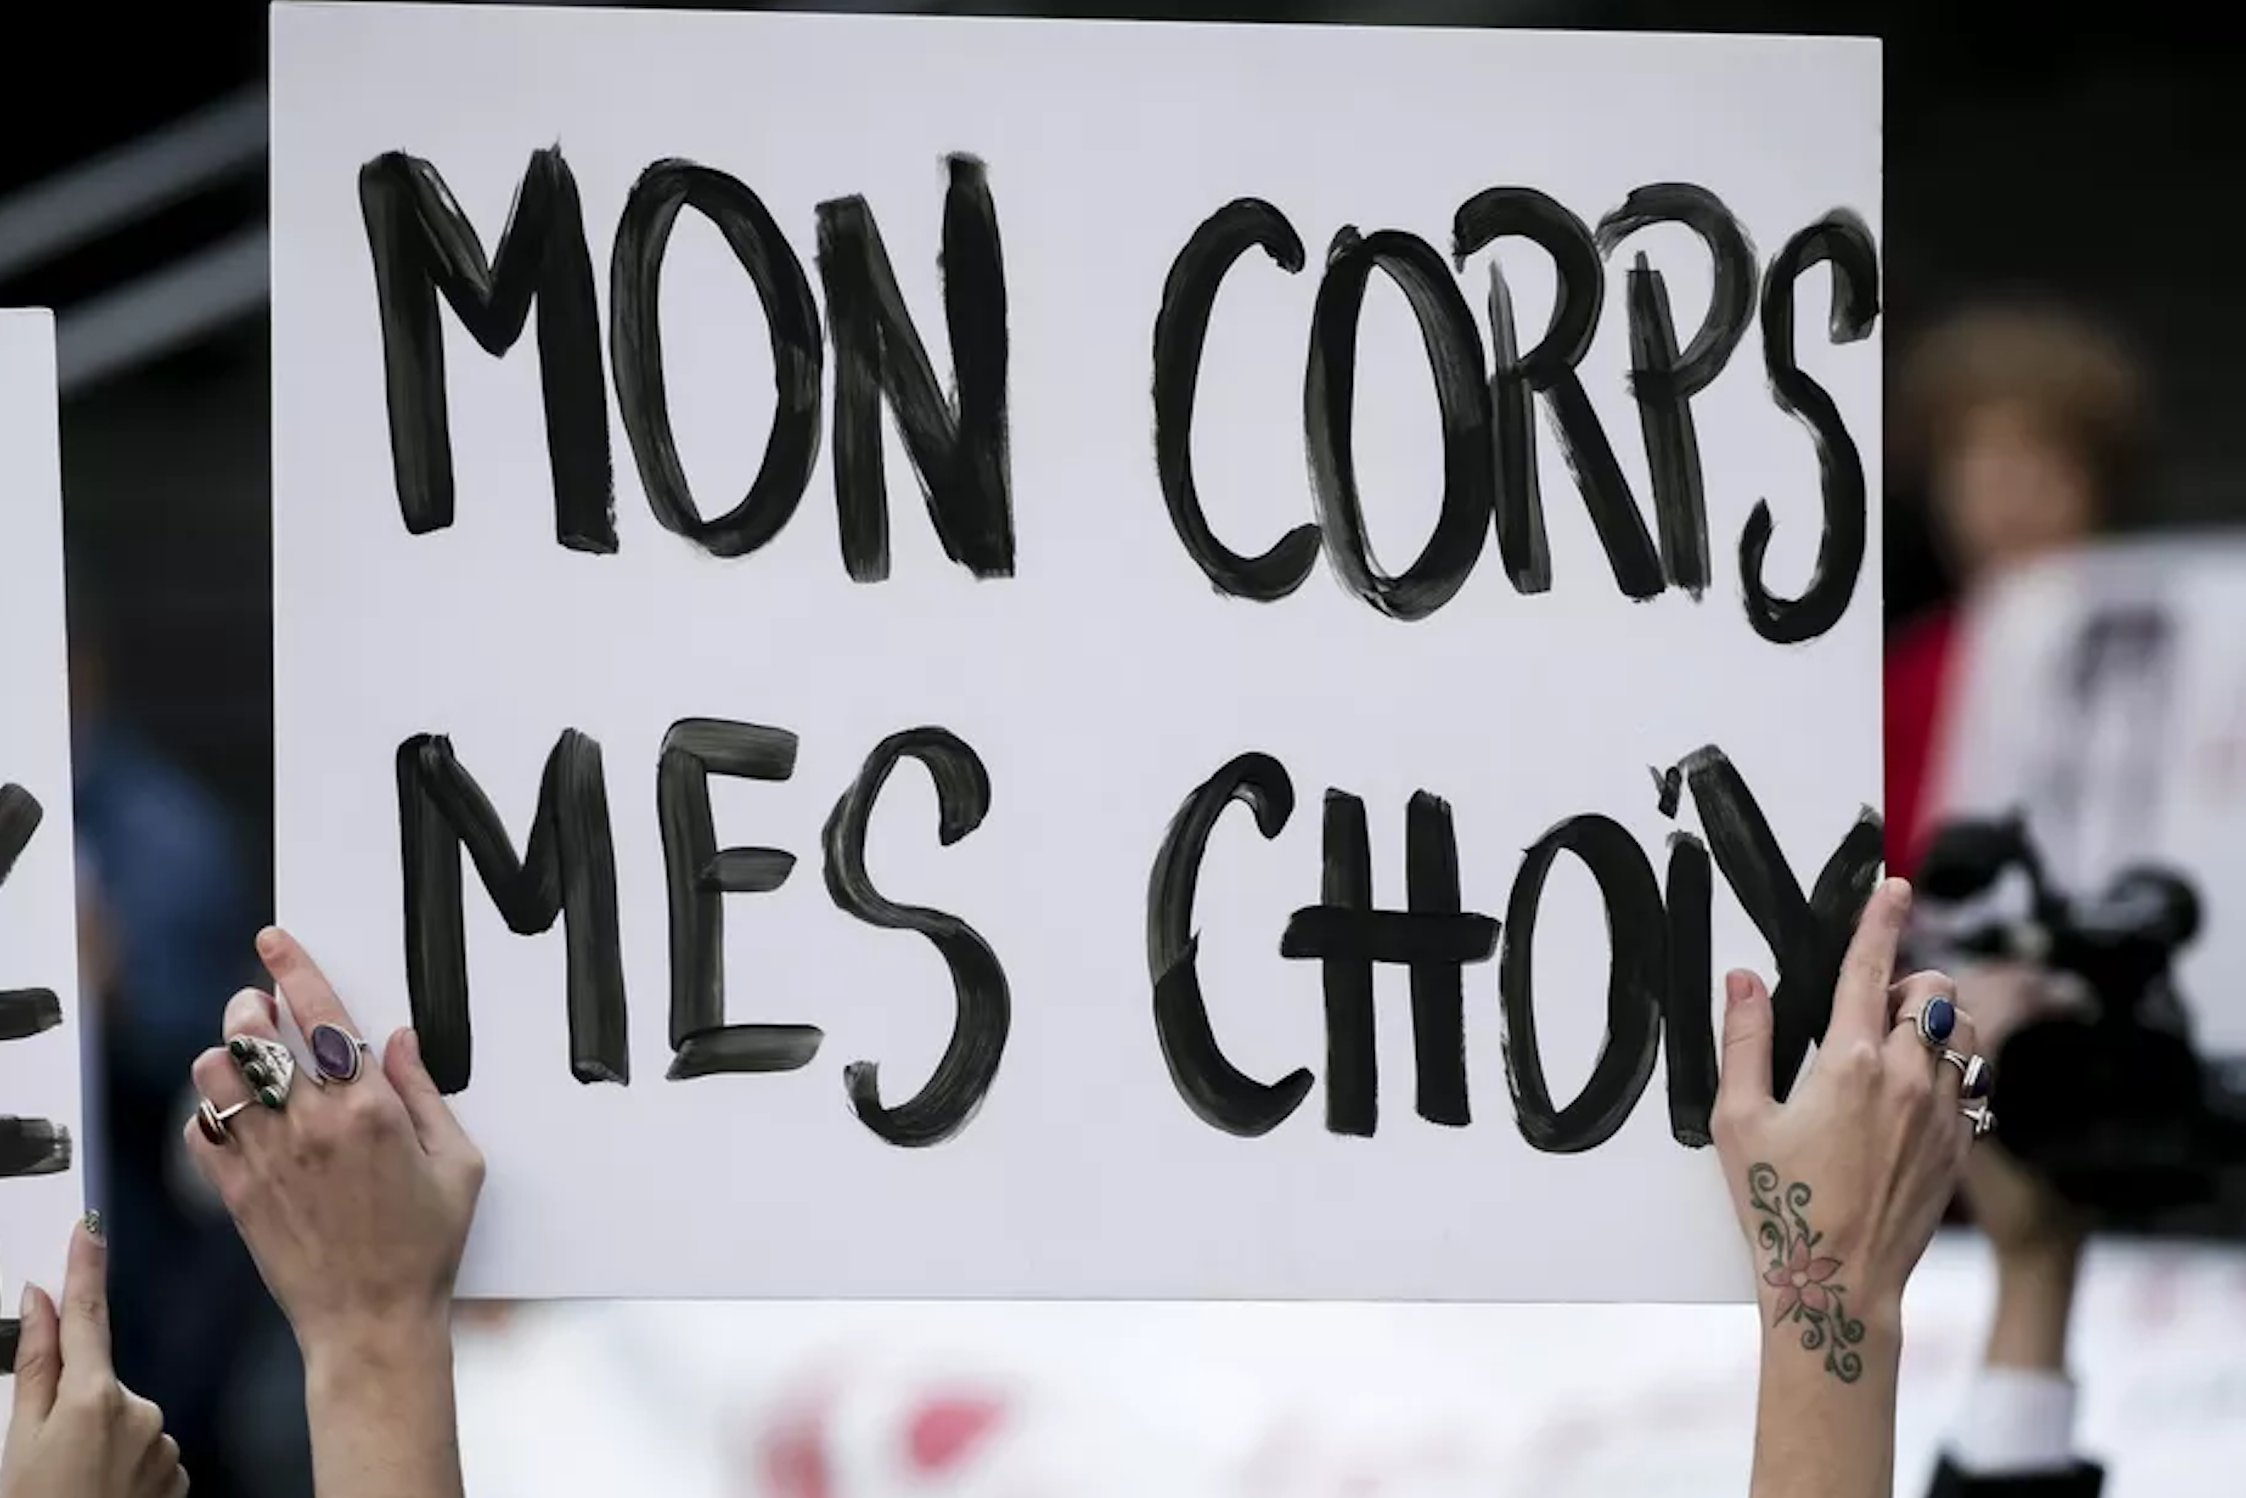 MON CORPS
MES CHOIX